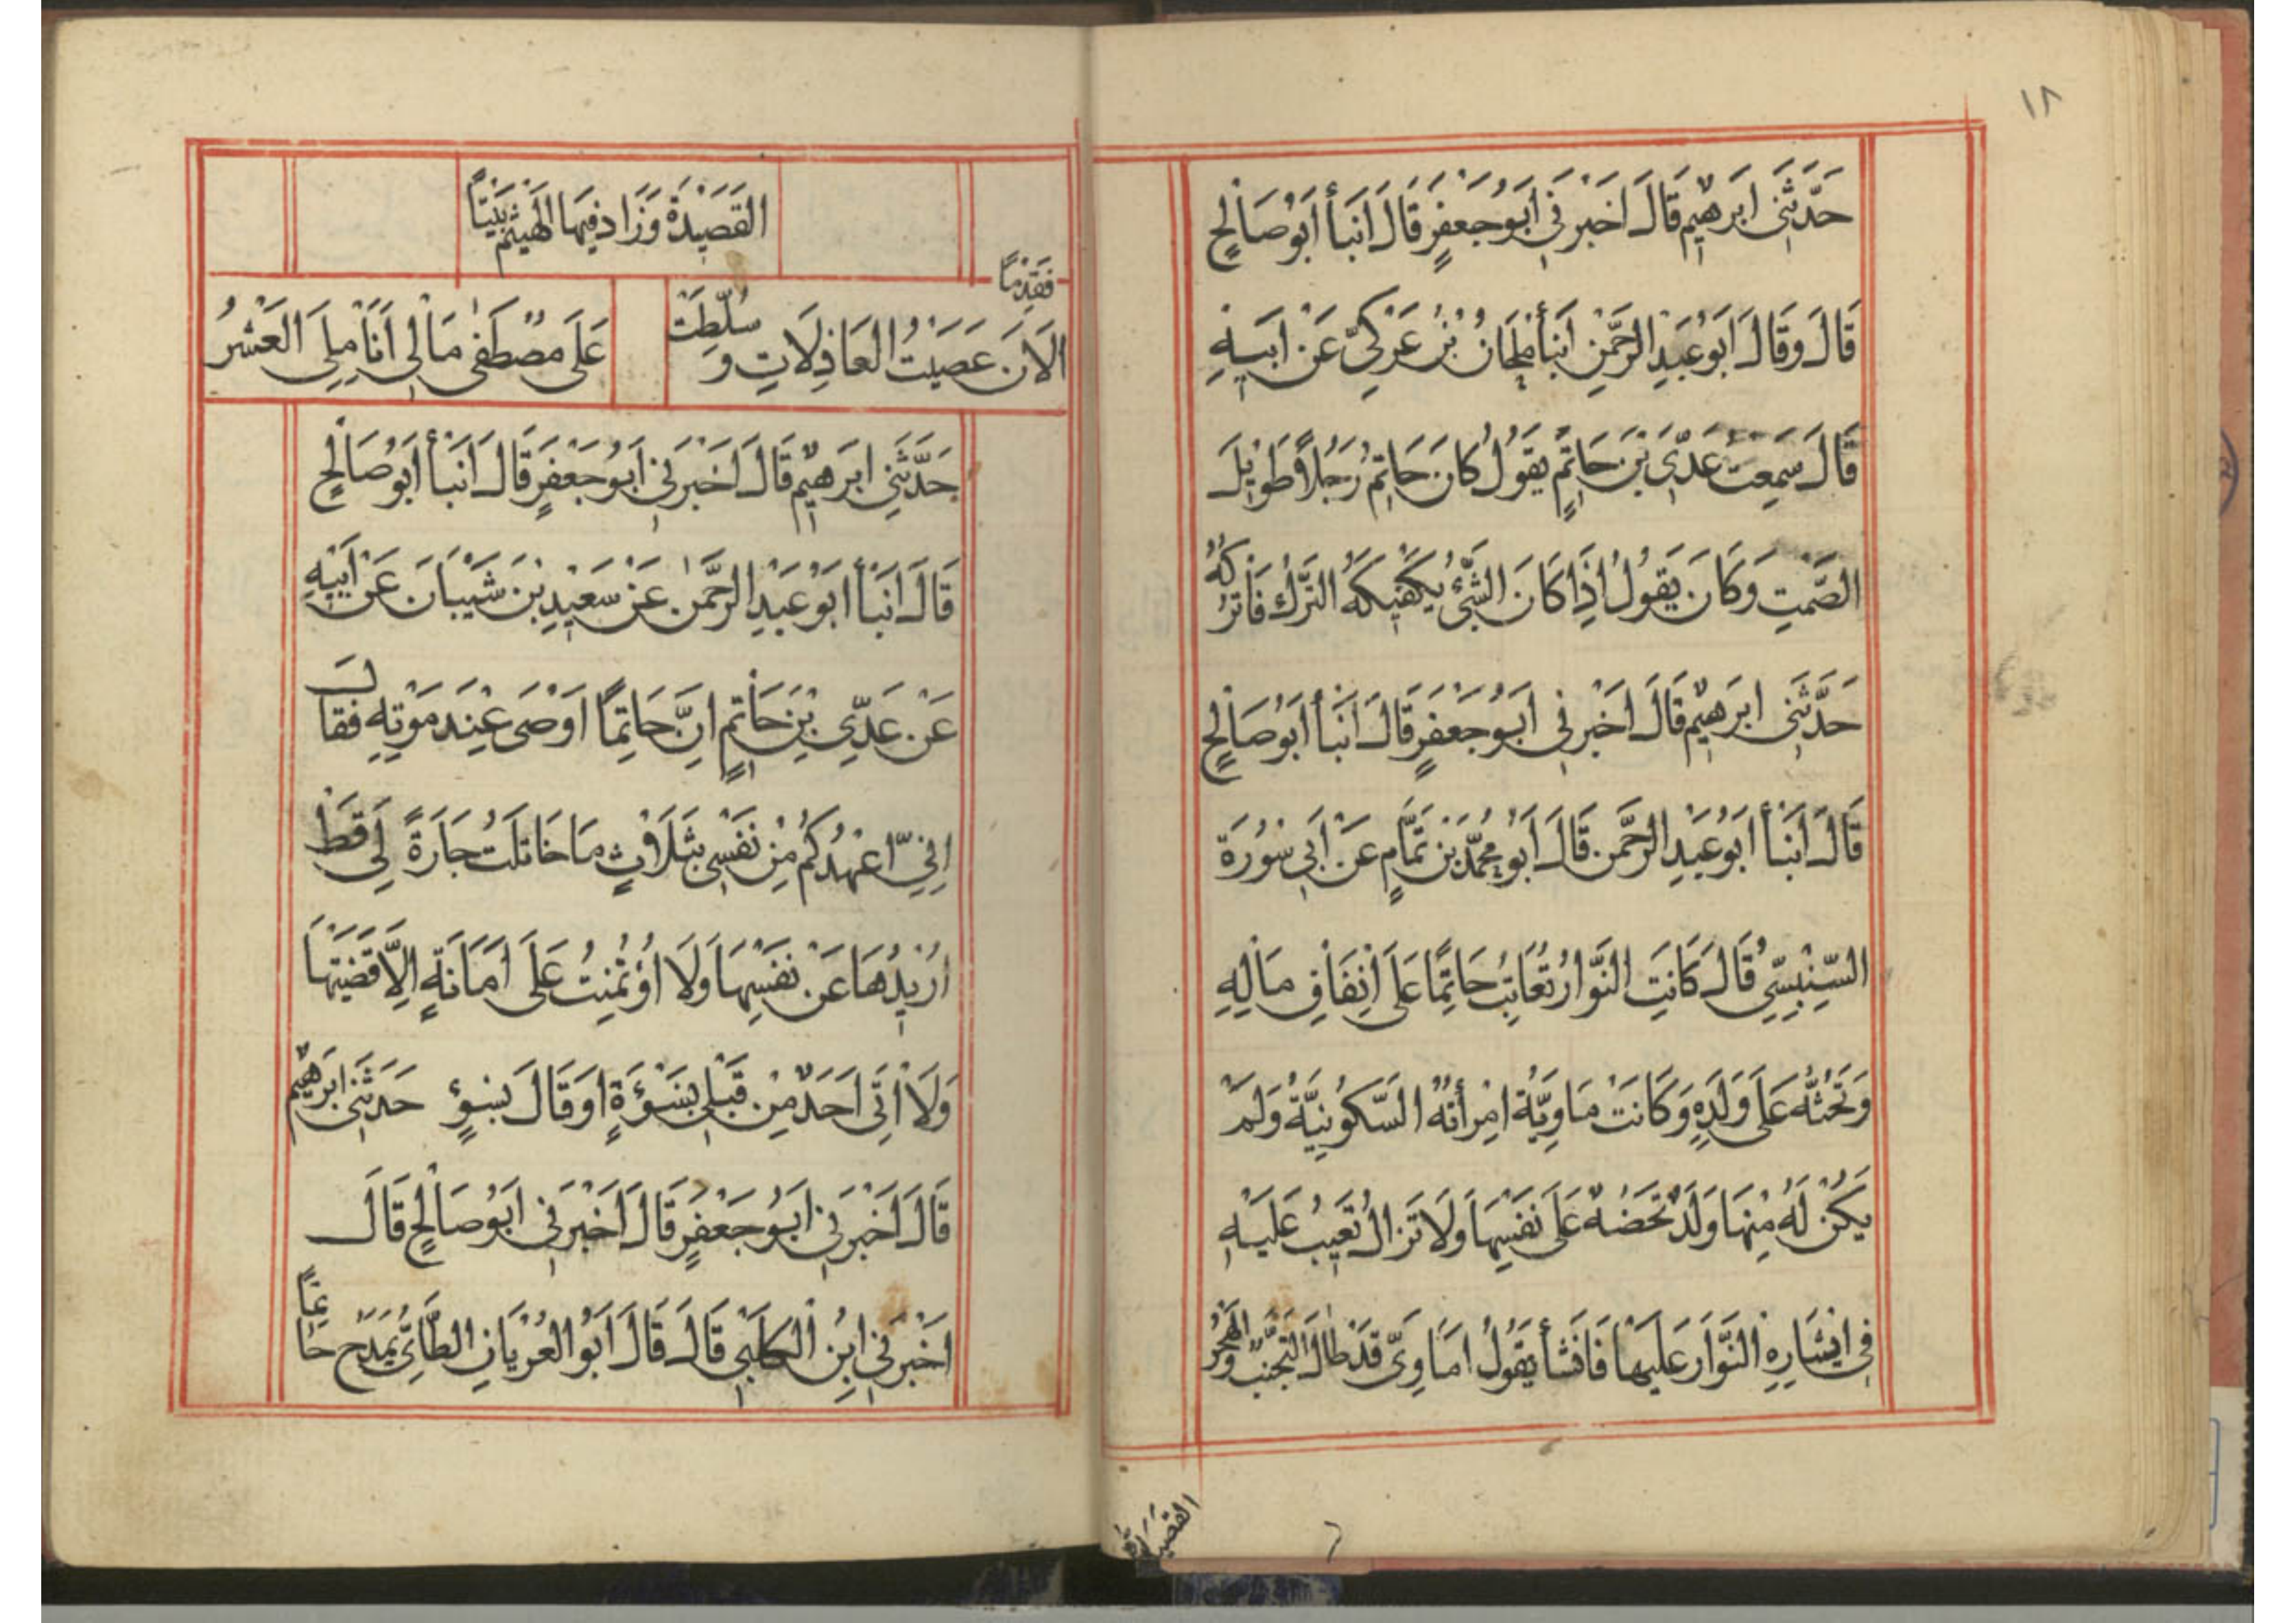 ١٨
حَدَّثَنِي اِبرَهِيمُ قَالَ اَخْبَرَنِي اَبُو جَعْفَرٍ قَالَ اَنبَأ اَبُو صَالِحٍ
قَالَ وَقَالَ اَبُو عَبْدِ الرَّحْمٰنِ اَنبأ مِلْحَانُ بْنُ عَرَكِيّ عَنْ اَبيهِ
قَالَ سَمِعتُ عَدِّيَ بْنَ حَاتِمٍ يقولُ كانَ حَاتِمُ رَجُلاً طَوِيلَ
الصَّمْتِ وَكَانَ يَقولُ اِذَا كَانَ الشَّيْءُ يَكْفِيكَهُ التَّركُ فَاتْرُكهُ
حَدَّثَنِي اِبرَهِيمُ قَالَ اَخْبَرَنِي اَبُو جَعْفَرٍ قَالَ اَنبَأ اَبُو صَالِحٍ
قَالَ اَنبَأ اَبُو عَبْدِ الرَّحْمٰن قَالَ اَبُو مُحَمَّد بَن تَمَّامٍ عَنْ اَبِي سُورَة
السِّنْبِسِيِّ قَالَ كَانَتِ النَّوَّارُ تُعَاتِبُ حَاتِمًا عَلَى اِنْفَاقِ مَالِهِ
وَتَحُثُّهُ عَلَى وَلَدِهِ وَكَانَتْ مَاوِيَّةُ امْرَأَتهُ السَّكُونِيَّةُ وَلَمْ
يَكُنْ لَهُ مِنْهَا وَلَدٌ تَحَضُهُ عَلَى نَفْسِهَا وَلَا تَزالُ تُعَيبُ عَلَيْهِ
فِي اِيْثَارِهِ النَّوَّارَ عَلَيهَا فَانْشأ يَقُولُ اَمَاوِيَّ قَدْ طَالَ التَّجَنُّبُ وَالْهَجْرُ
القصيدة
القَصَيْدَةُ وَزَادَ فِيهَا الهَيْثَمُ بَيْتًا
فَقِدْمًا
الَانَ عَصَيْتُ العَاذِلَاتِ وَسُلِّطَتْ
عَلَى مُصْطَفَى مَالِى اَنَامِلِيَ العَشْرُ
حَدَّثَنِي اِبرَهِيمُ قَالَ اَخْبَرَنِي اَبُو جَعْفَرٍ قَالَ اَنبَأ اَبُو صَالِحٍ
قَالَ اَنبَأ اَبُو عَبْدِ الرَّحْمٰنِ عَنْ سَعِيْدِ بْنَ شَيْبَانَ عَنْ اَبِيهِ
عَنْ عَدِّيِ بْنِ حَاتِمٍ اِنَّ حَاتِمًا اَوْصَى عِنْدَ مَوْتِهِ فَقَالَ
اِنِيّ اعْهَدُكُمْ مِنْ نَفْسِي بِثَلَاثٍ مَا خَاتَلْتُ جَارَةً لِي قَطُّ
اُرِيدُهَا عَنْ نَفْسِهَا وَلَا اُؤتُمِنْتُ عَلَى اَمَانَةٍ اِلَّا قَضَيْتَهَا
وَلَا اُتِيَ اَحَدٌ مِنْ قَبْلِي بِسَوْءَةٍ اَوقَالَ بِسُوءٍ حَدَثَنِي ابرَهِيمُ
قَالَ اَخْبَرَنِي اَبُو جَعْفَرٍ قَالَ اَخْبَرَنِي اَبُو صَالِحٍ قَالَ
اَخْبَرَنِي ابِن الكَلْبِي قَالَ قَالَ اَبُو العُرْيَانِ الطَّائِيُّ يَمْدَحُ حَاتِمًا